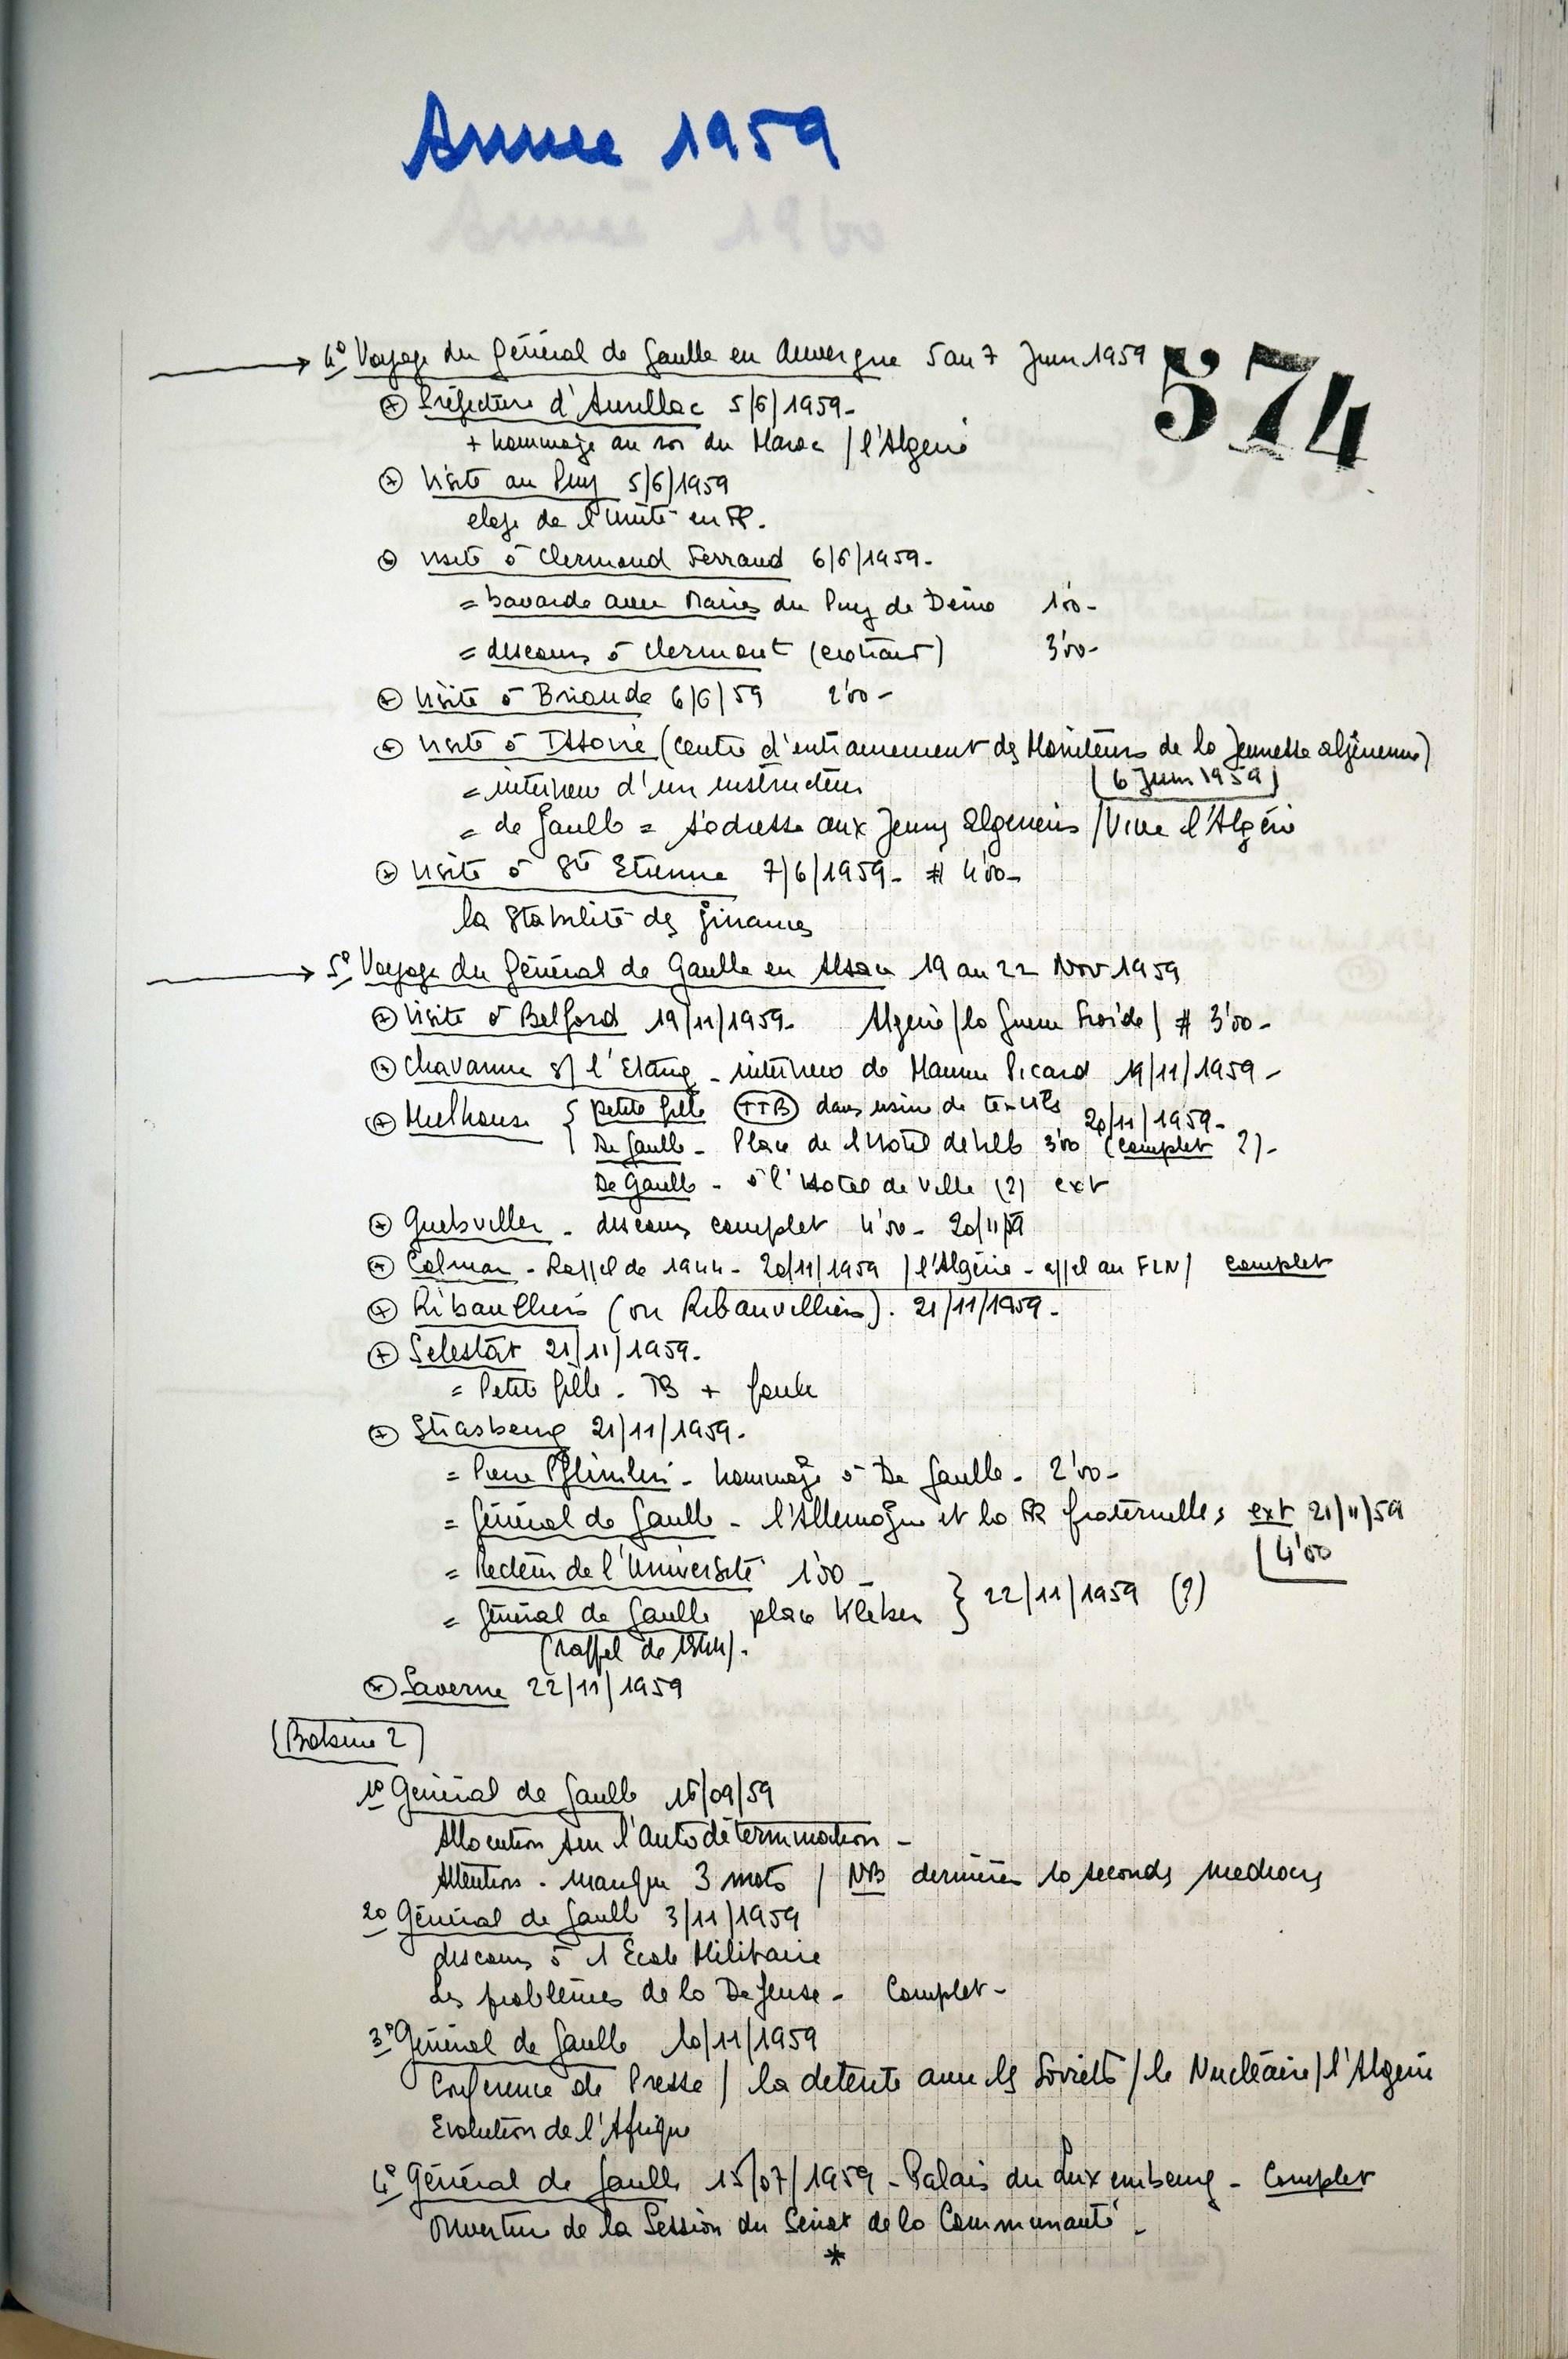 Année 1959
4° Voyage du Général de Gaulle en Auvergne 5 au 7 Juin 1959
574
+ Préfecture d'Aurillac 5/6/1959-
+ hommage au roi du Maroc / l'Algérie
+ Visite au Puy 5/6/1959
eloge de l'Unité en FR.
+ Visite à Clermond Ferrand 6/6/1959-
= bavarde avec Maires du Puy de Dôme 1'00-
= discours à Clermont (extrait) 3'00-
+ Visite à Brioude 6/6/59 2'00-
+ Visite à Issoire (centre d'entrainement des Moniteurs de la Jeunesse algérienne)
(6 Juin 1959)
= interview d'un instructeur
= de Gaulle = s'adresse aux Jeunes algeriens / Vive l'Algérie
+ Visite à St Etienne 7/6/1959- # 4'00-
la Stabilité des finances
5° Voyage du Général de Gaulle en Alsace 19 au 22 Nov 1959
+ Visite à Belford 19/11/1959- Algerie / la Guerre Froide / # 3'00-
+ Chavanne s/ l'Etang - interview de Picard 19/11/1959-
+ Mulhouse { petite fille (TTB) dans usine de textiles 20/11/1959-
De Gaulle - Place de l'Hotel de Ville 3'00 (complet ?)-
De Gaulle - à l'Hotel de Ville (?) ext
+ Guebviller - discours complet 4'50- 20/11/59
+ Colmar - Rappel de 1944- 20/11/1959 / l'Algérie - appel au FLN / complet
+ Ribaulliers (ou Ribauvilliers). 21/11/1959-
+ Selestat 21/11/1959.
= Petite fille - TB + foule
+ Strasbourg 21/11/1959.
= Pierre Pflimlin - hommage à De Gaulle - 2'00-
= Général de Gaulle - l'Allemagne et la FR fraternelles ext 21/11/59
4'00
= Recteur de l'Université 1'30 -
= Général de Gaulle place Kleber } 22/11/1959 (?)
(rappel de 1944).
+ Saverne 22/11/1959
(Bobine 2)
1° Général de Gaulle 16/09/59
Allocution sur l'Autodétermination -
Attention - manque 3 mots / NB dernières 10 seconds mediocres
2° Général de Gaulle 3/11/1959
discours à l'Ecole Militaire
Les problèmes de la Defense - Complet -
3° Général de Gaulle 10/11/1959
Conference de Presse / la detente avec les Soviets / le Nucléaire / l'Algerie
Evolution de l'Afrique
4° Général de Gaulle 15/07/1959 - Palais du Luxembourg - Complet
Ouverture de la Session du Senat de la Communauté -
*